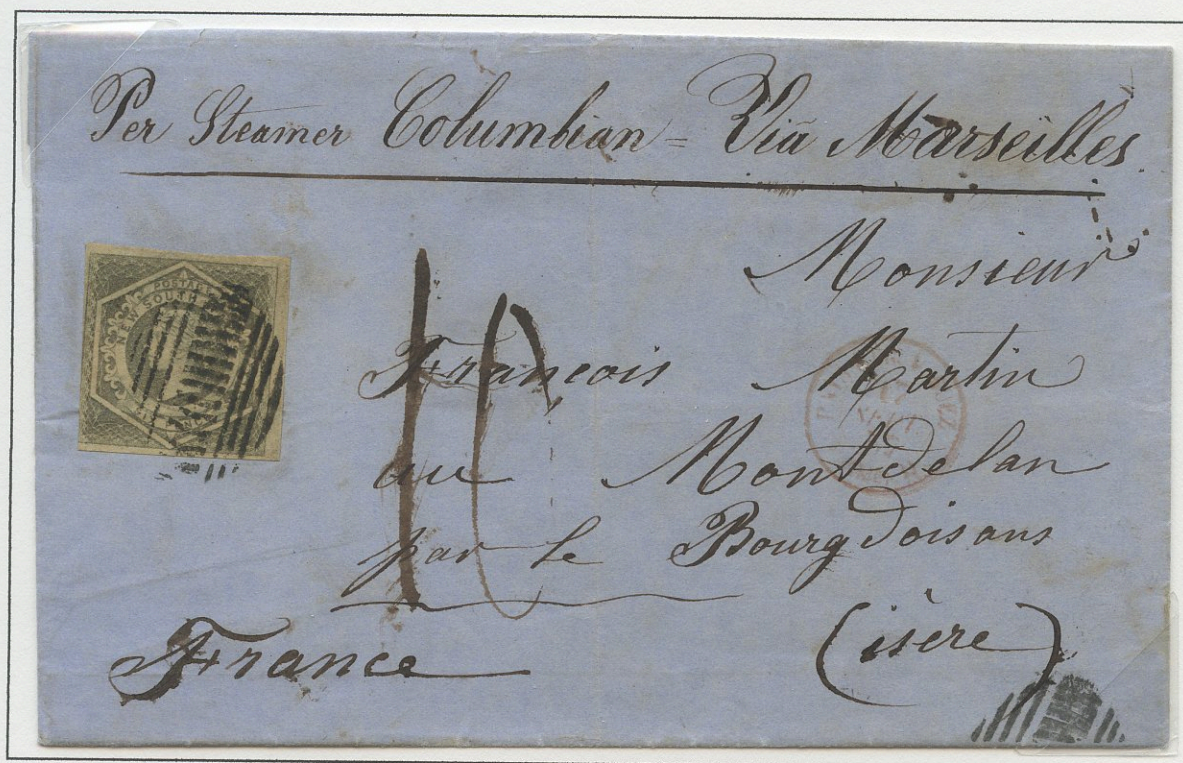 Per Steamer Columbian = Viã Marseilles
POSTAGE
NEW SOUTH
10
Monsieur
François Martin
au Montdelan
par le Bourgdoisans
(isère)
France